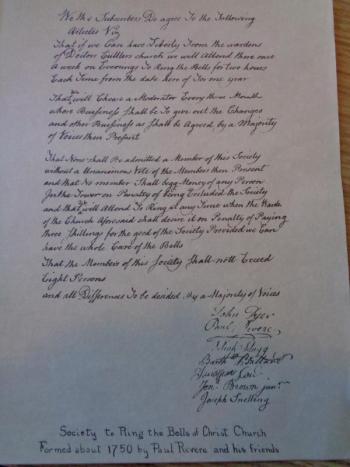 We the Subscribers Do agree To the Following
Articles Viz
That if we Can have Liberty From the wardens
of Doctor Cuttlers church we will Attend there once
a week on Evenings To Ring the Bells for two hours
Each Time from the date here of For one year
That we will Chuse a Moderator Every three Months
whose Business Shall be To give out the Changes
and other Business as Shall be Agreed by a Majority
of Voices then Present
That None shall Be admitted a Member of this Society
without a Unanimous Vote of the Members then Present
and that No member Shall begg Money of any Person
In the Tower on Penalty of being Excluded the Society
and that we will Attend To Ring at any Time when the Wardens
of the Church Aforesaid shall desire it on Penalty of Paying
three Shillings for the good of the Society Provided we Can
have the whole Care of the Bells
That the Members of this Society Shall nott Exceed
Eight Persons
and all Differences To be decided By a Majority of Voices
John Dyer
Paul Revere
Josiah Flagg
Barth Ballard
Jonathan Law
Jona Brown junr
Joseph Snelling
Society to Ring the Bells of Christ Church
Formed about 1750 by Paul Revere and his friends